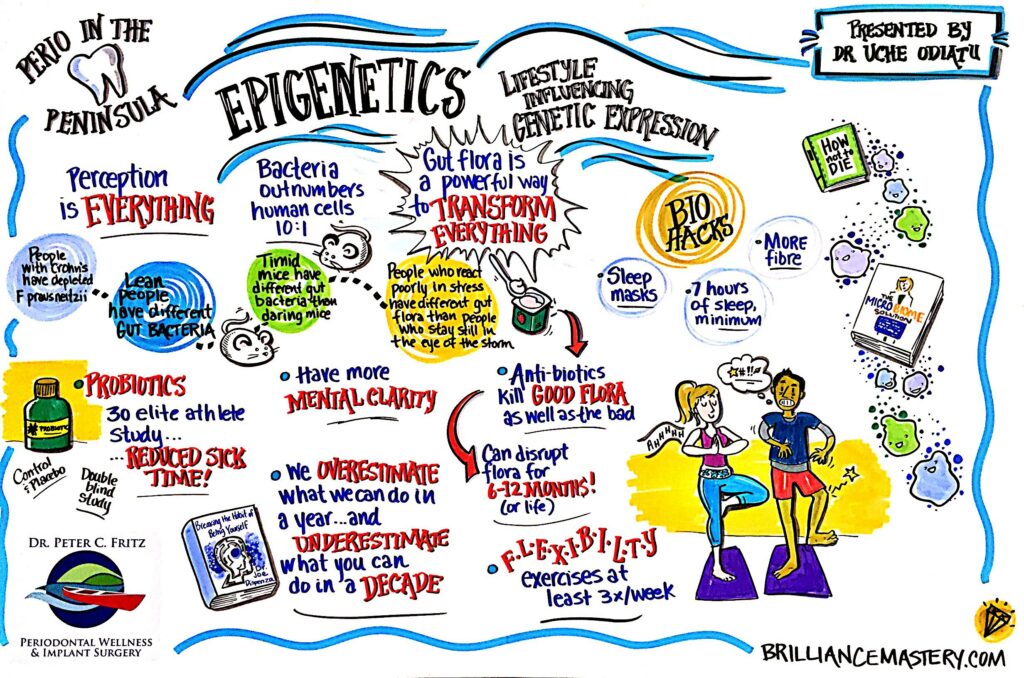 PERIO IN THE
PENINSULA
EPIGENETICS
LIFESTYLE
INFLUENCING
GENETIC EXPRESSION
PRESENTED BY
DR UCHE ODIATU
Perception
is EVERYTHING
Bacteria
outnumbers
human cells
10:1
Gut flora is
a powerful way
to TRANSFORM
EVERYTHING
BIO
HACKS
• Sleep
masks
• 7 hours
of sleep,
minimum
• MORE
fibre
HOW
not to
DIE
THE
MICROBIOME
SOLUTION
People
with Crohn's
have depleted
F prausneitzii
Lean
people
have different
GUT BACTERIA
Timid
mice have
different gut
bacteria then
daring mice
People who react
poorly in stress
have different gut
flora than people
who stay still in
the eye of the storm
• PROBIOTICS
30 elite athlete
study...
...REDUCED SICK
TIME!
PROBIOTIC
Control
& Placebo
Double
blind
study
• Have more
MENTAL CLARITY
• We OVERESTIMATE
what we can do in
a year...and
UNDERESTIMATE
what you can
do in a DECADE
Breaking the Habit of
Being Yourself
Dr.
Joe
Dispenza
• Anti-biotics
kill GOOD FLORA
as well as the bad
Can disrupt
flora for
6-12 MONTHS!
(or life)
• F·L·E·X·I·B·I·L·T·Y
exercises at
least 3x/week
AHHHHH
#!!
DR. PETER C. FRITZ
PERIODONTAL WELLNESS
& IMPLANT SURGERY
BRILLIANCEMASTERY.COM